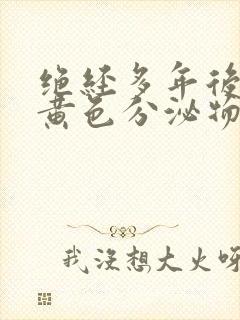 绝经多年后
黄色分泌物
我没想大火呀